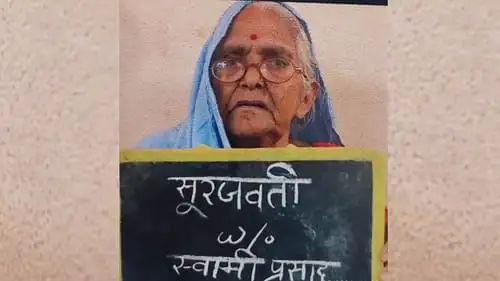 सूरजवती
w/o
स्वामी प्रसाद